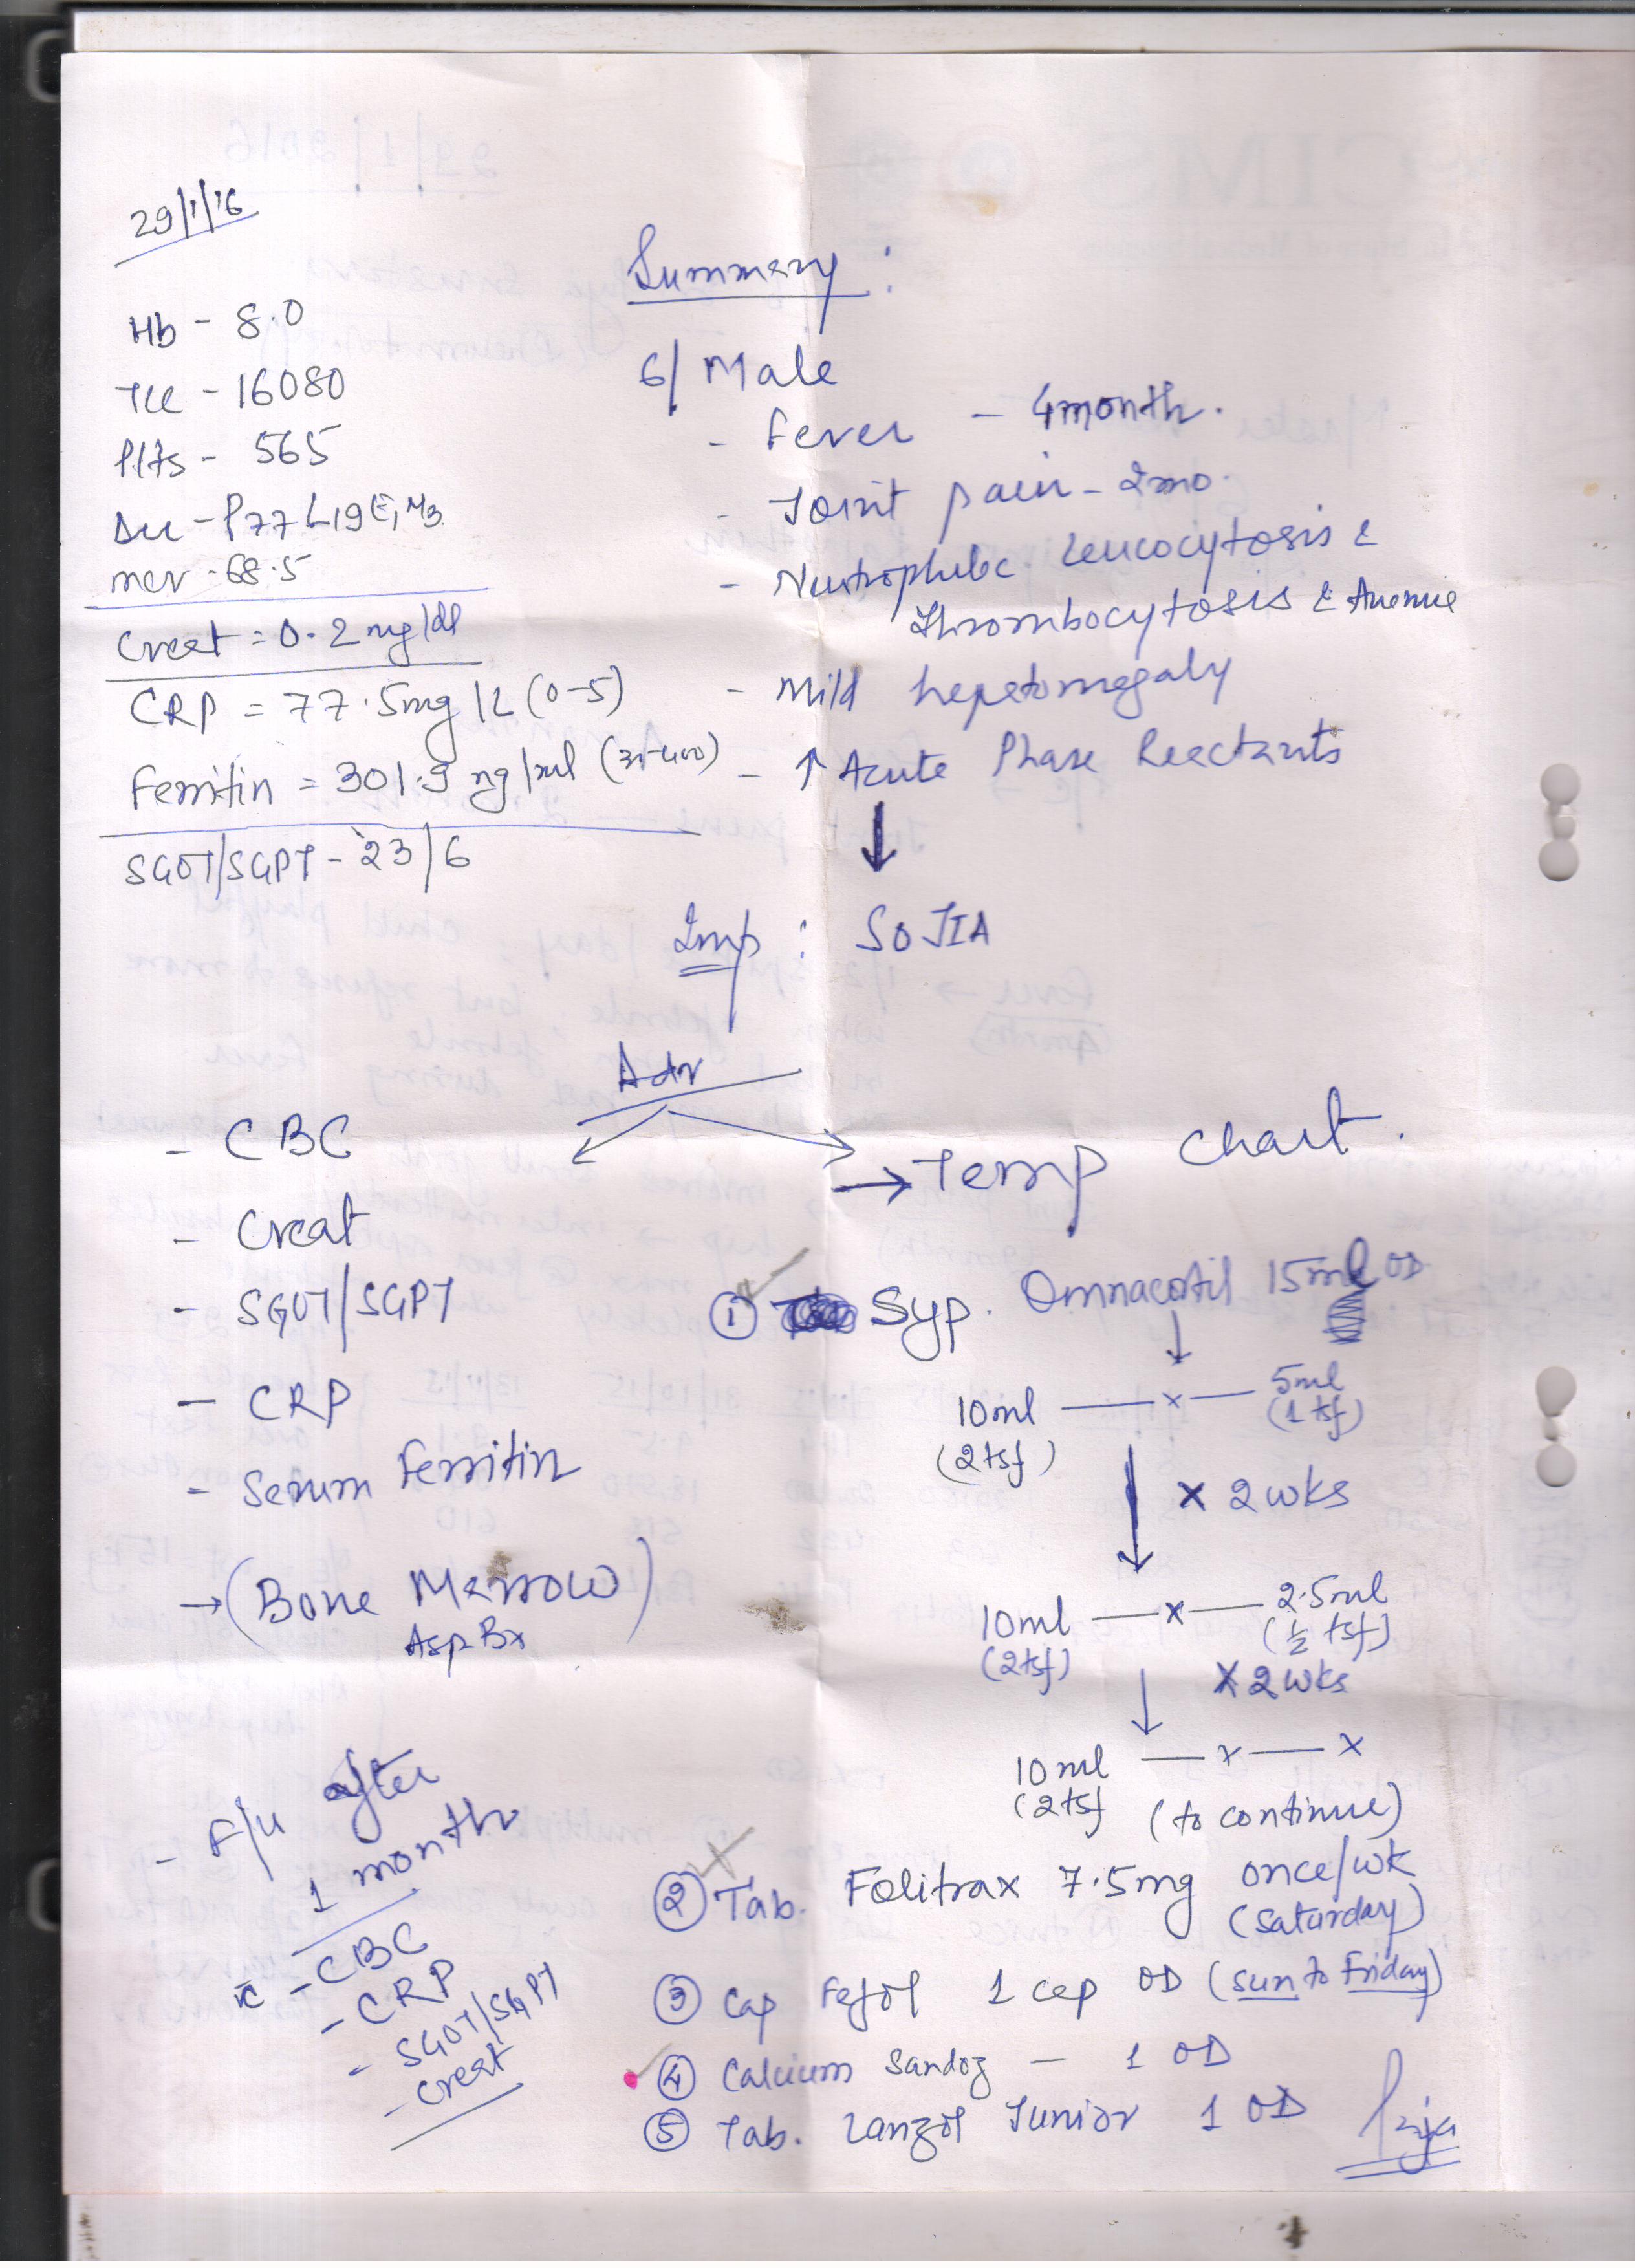 29/1/16
Hb - 8.0
TLC - 16080
Plts - 565
DLC - P77 L19 E1 M3
MCV - 68.5
Creat = 0.2 mg/dl
CRP = 77.5mg/L (0-5)
Ferritin = 301.9 ng/ml (30-400)
SGOT/SGPT - 23/6
Summary :
6/ Male
- Fever - 4month.
- Joint pain - 2mo.
- Neutrophilic Leucocytosis &
Thrombocytosis & Anemia
- Mild hepatomegaly
- ↑ Acute Phase Reactants
↓
Imp : SOJIA
Adv
- CBC
- Creat
- SGOT/SGPT
- CRP
- Serum Ferritin
→ (Bone Marrow)
Asp Bx
- F/u after
1 month
c̄ - CBC
- CRP
- SGOT/SGPT
- Creat
→ Temp Chart.
① Syp. Omnacortil 15ml OD
↓
10ml — x — 5ml
(2tsf) (1 tsf)
↓ x 2 wks
10ml — x — 2.5ml
(2tsf) (½ tsf)
↓ x 2 wks
10ml — x — x
(2tsf (to continue)
② Tab. Folitrax 7.5mg once/wk
(Saturday)
③ Cap Fefol 1 cap OD (Sun to Friday)
④ Calcium Sandoz - 1 OD
⑤ Tab. Lanzol Junior 1 OD